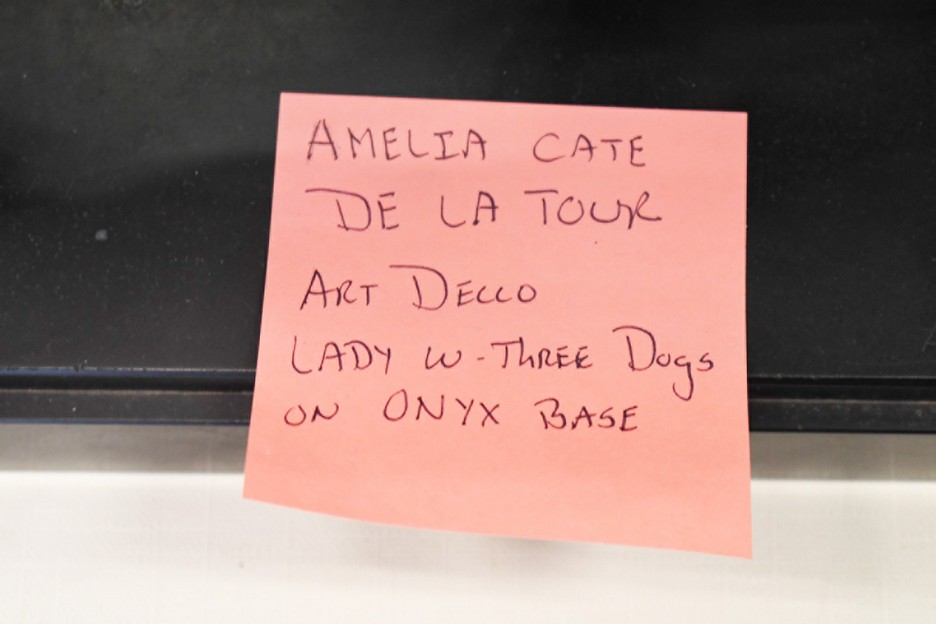 AMELIA CATE
DE LA TOUR
ART DECCO
LADY W-THREE Dogs
ON ONYX BASE